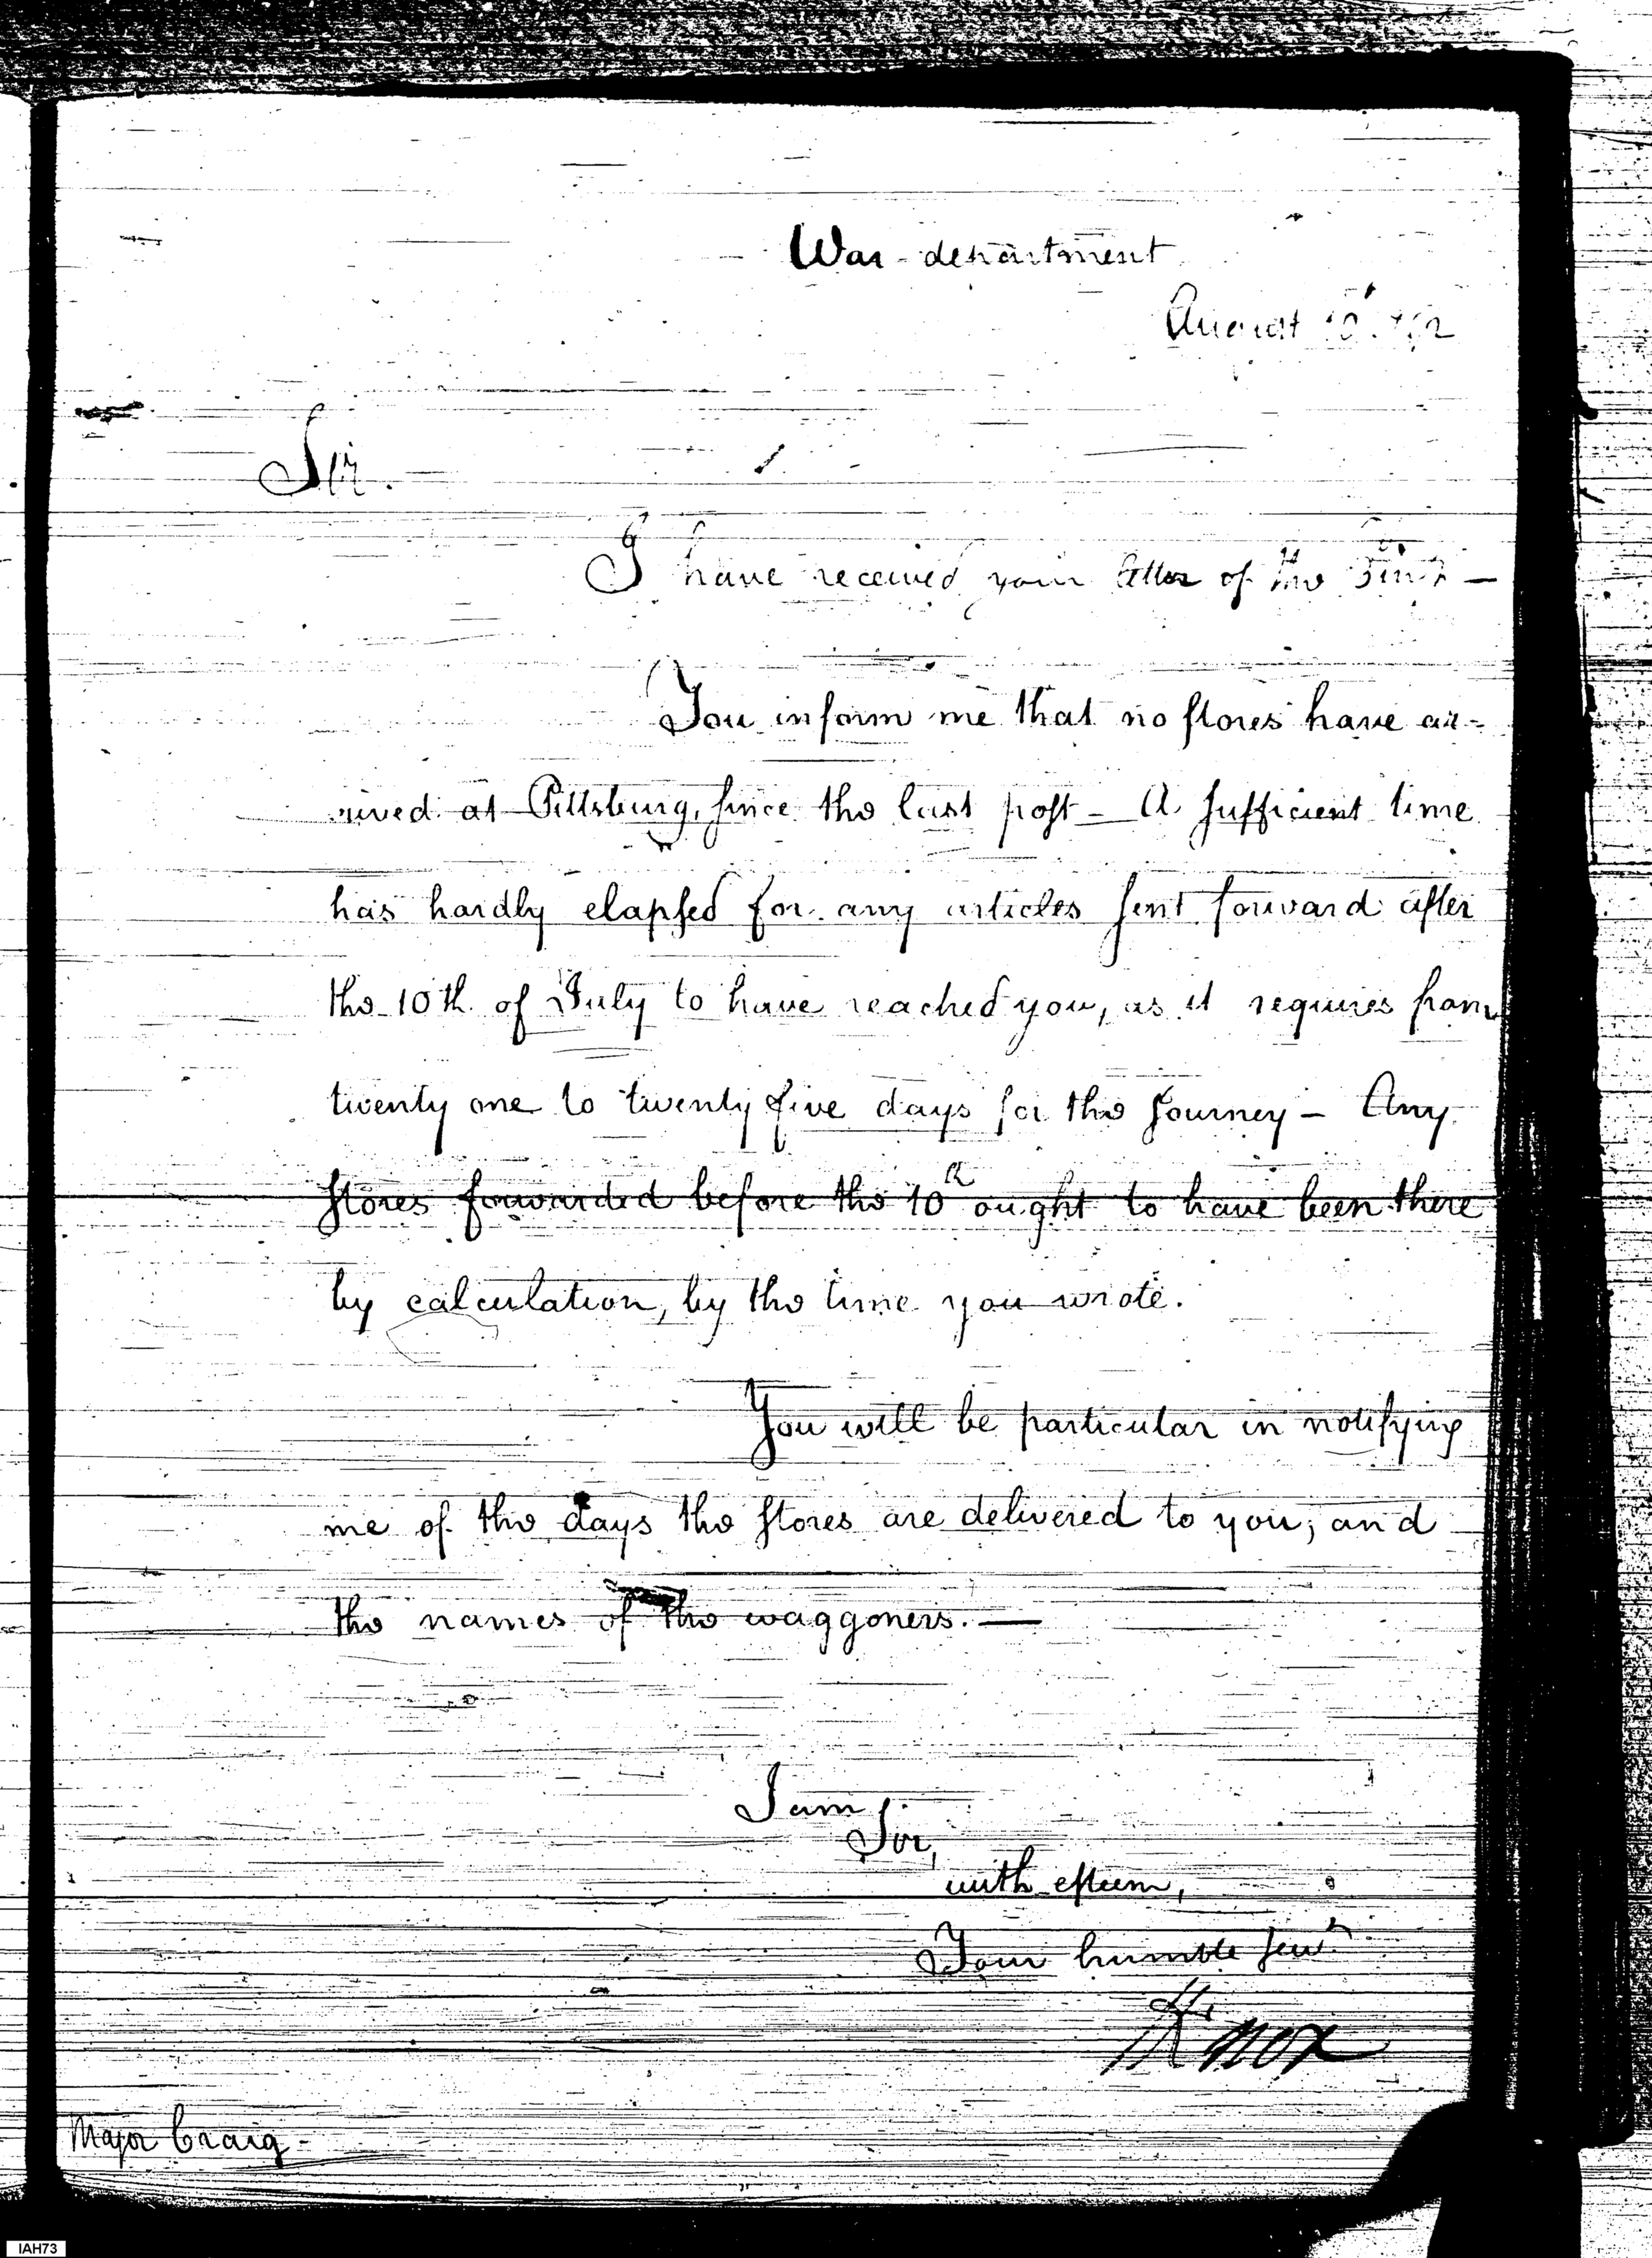 War-department
August
Sir.
I have received your letter of the
You inform me that no stores have ar-
rived at Pittsburg, since the last post – A sufficient time
has hardly elapsed for any articles sent forward after
the 10th. of July to have reached you, as it requires from
twenty one to twenty five days for the journey – Any
stores forwarded before the 10th ought to have been there
by calculation, by the time you wrote.
You will be particular in notifying
me of the days the stores are delivered to you; and
the names of the waggoners. —
I am
Sir,
with esteem,
Your humble servt.
HKnox
Major Craig -
IAH73